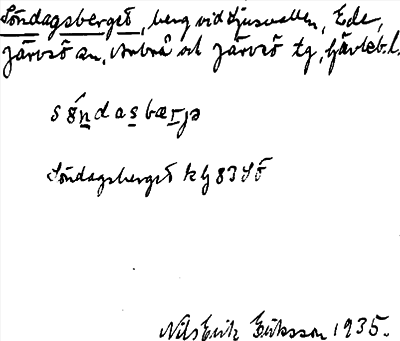 Söndagsberget, berg vid Ljusvallen, Ede,
Järvsö sn, Arbrå och Järvsö tg, Gävleb.l.
søndasbærjə
Söndagsberget kg 83 SÖ
Nils Erik Eriksson 1935.